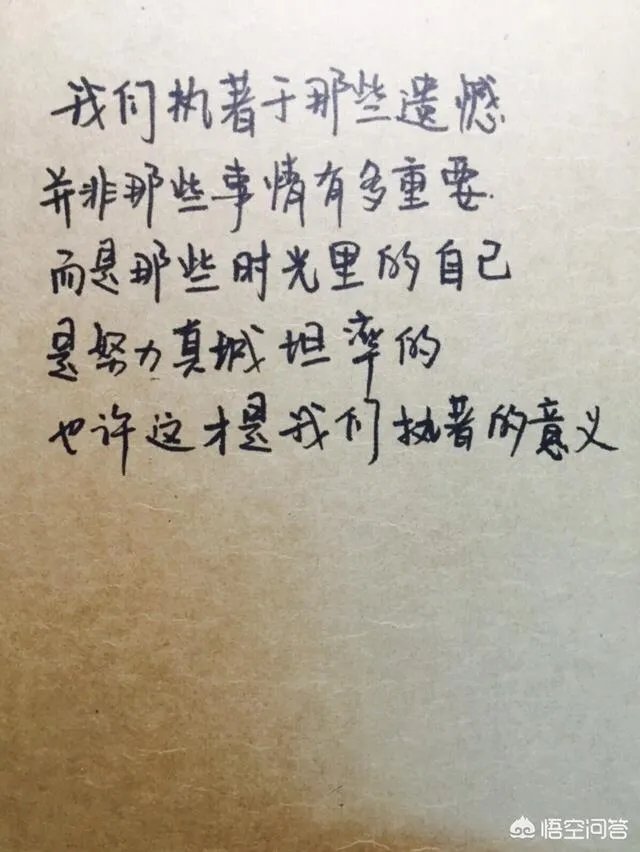 我们执著于那些遗憾
并非那些事情有多重要
而是那些时光里的自己
是努力真诚坦率的
也许这才是我们执著的意义
悟空问答